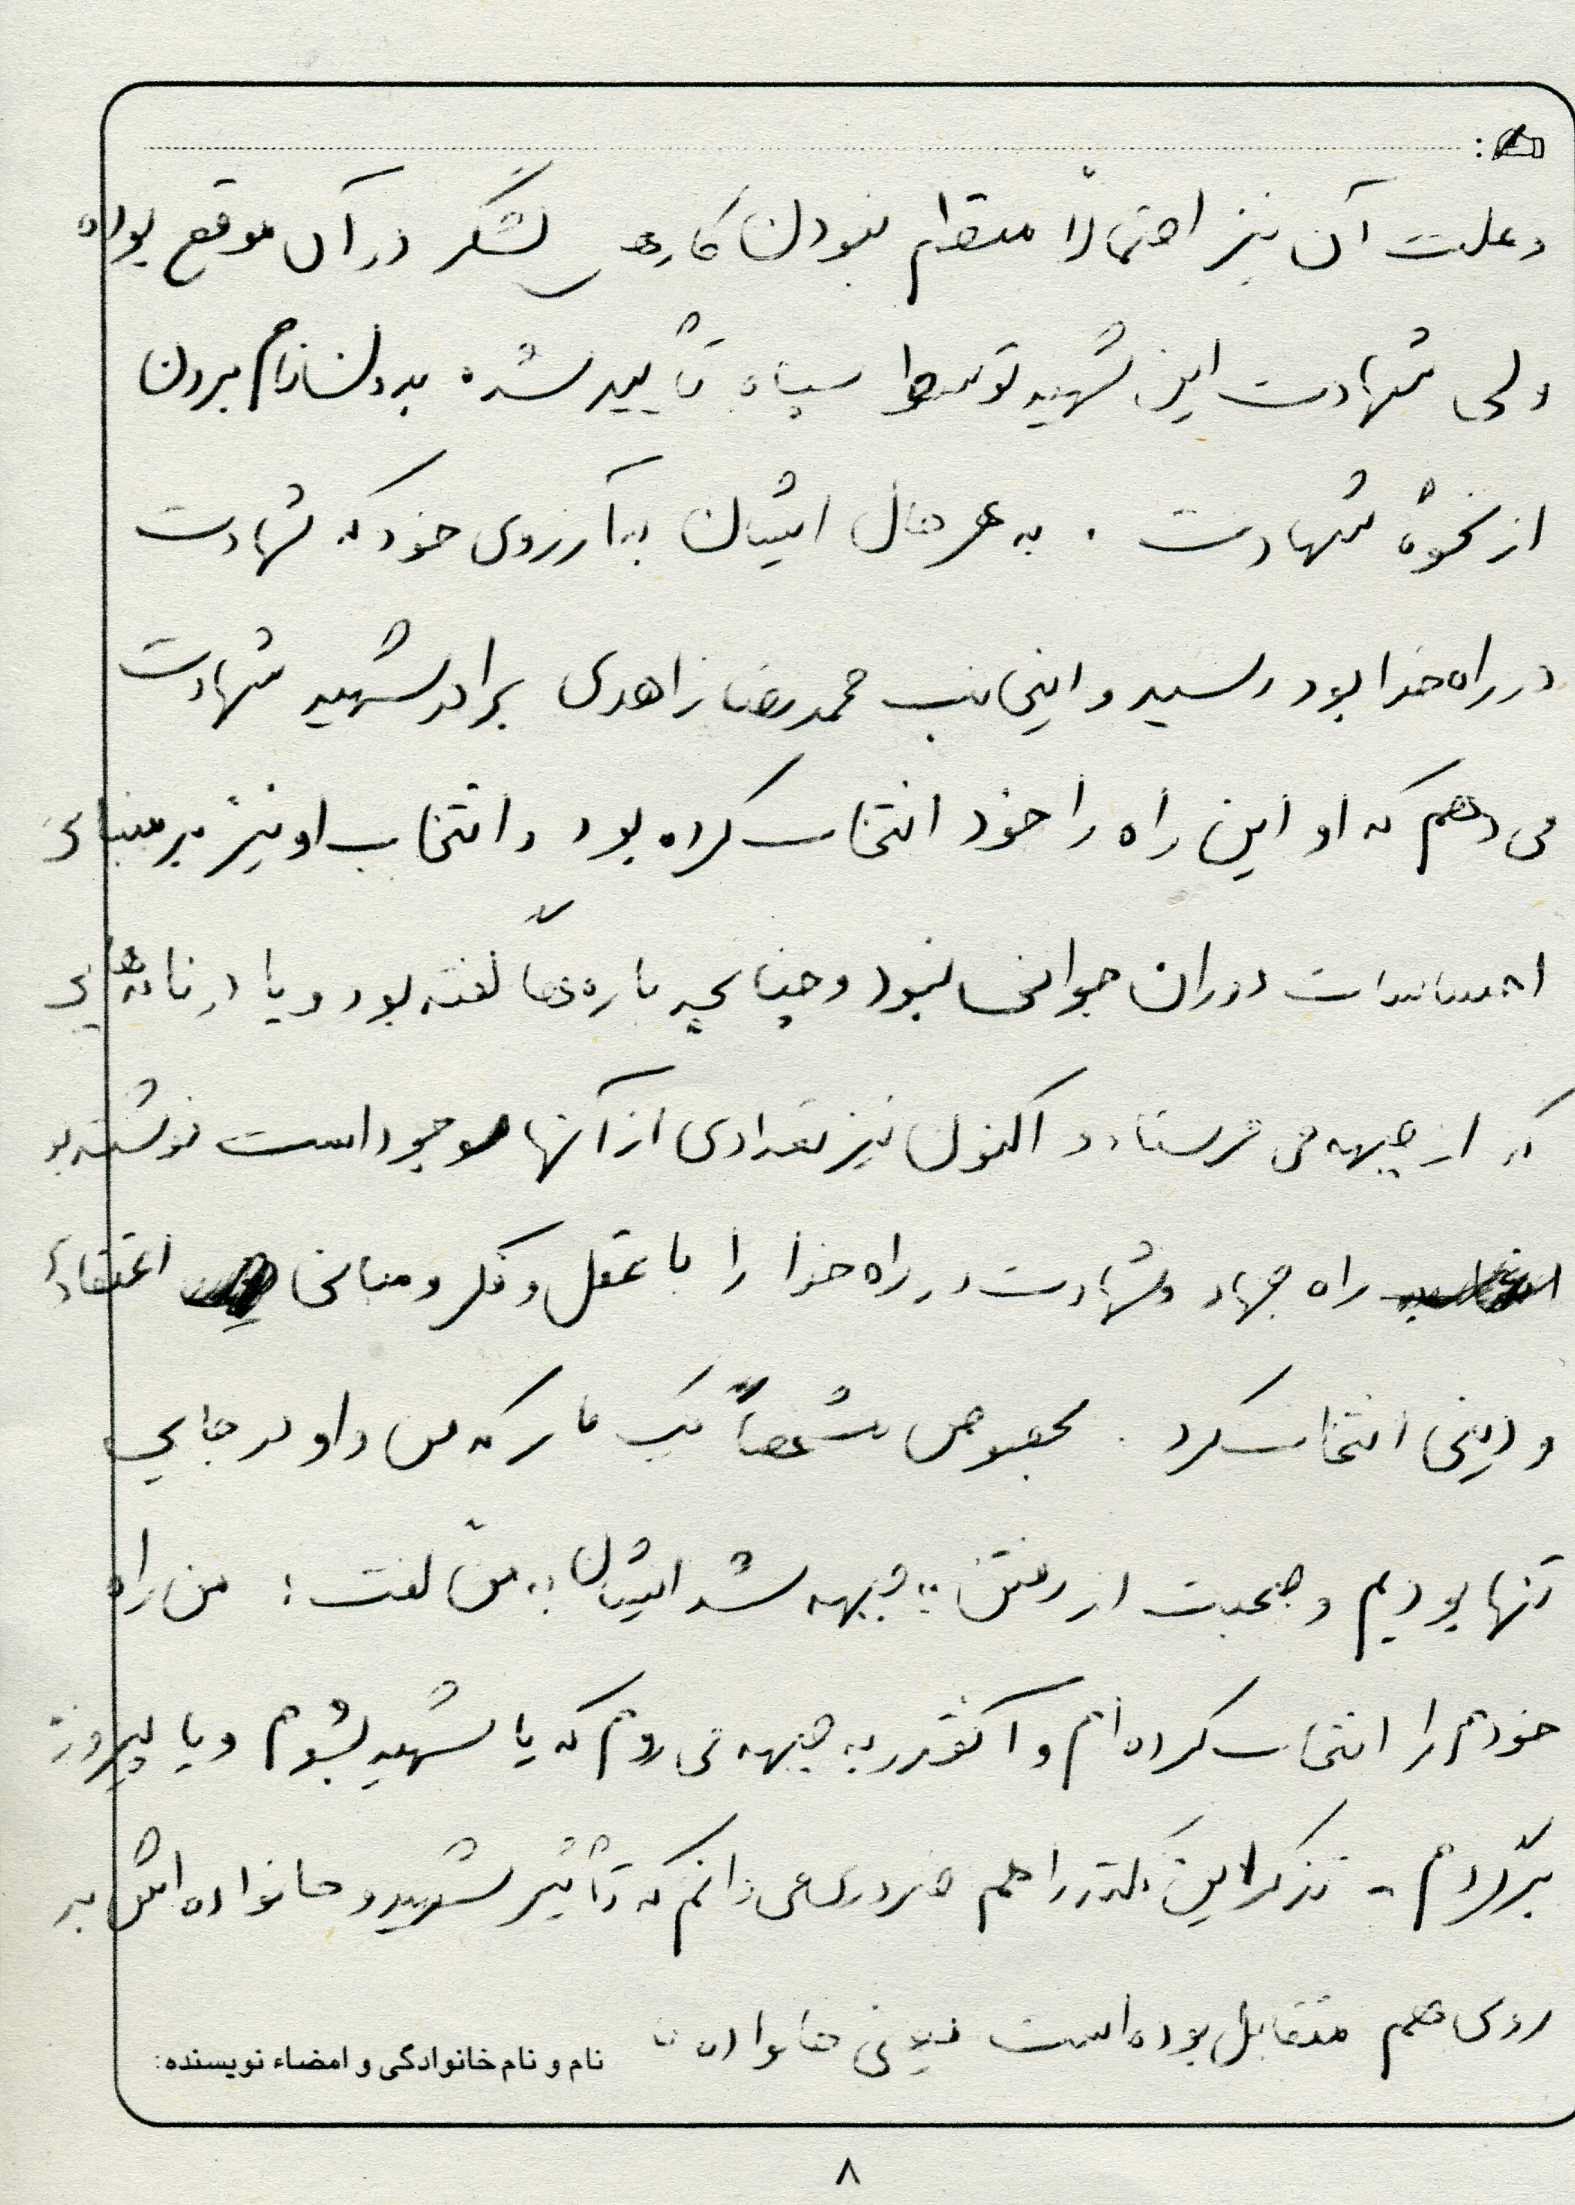 وعلت آن نیز احتمالاً منظم نبودن کارهای لشگر در آن موقع بوده
ولی شهادت این شهید توسط سپاه تأیید شده بدون نام بردن
از نحوهٔ شهادت . به هر حال ایشان به آرزوی خود که شهادت
در راه خدا بود رسید و اینجانب محمدرضا زاهدی برادر شهید شهادت
می دهم که او این راه را خود انتخاب کرده بود و انتخاب او نیز بر مبنای
احساسات دوران جوانی نبود و چنانچه بارها گفته بود و یا در نامه هایی
که از جبهه می فرستاد و اکنون نیز تعدادی از آنها موجود است نوشته بو
راه جهاد و شهادت در راه خدا را با عقل و فکر و مبانی اعتقادی
و دینی انتخاب کرد . بخصوص مشخصاً یک بار که من و او در جایی
تنها بودیم و صحبت از رفتن به جبهه شد ایشان به من گفت : من راه
خودم را انتخاب کرده ام و آنقدر به جبهه می روم که یا شهید بشوم و یا پیروز
برگردم - تذکر این نکته را هم ضروری می دانم که تأثیر شهید و خانواده اش بر
روی هم متقابل بوده است یعنی خانواده
نام و نام خانوادگی و امضاء نویسنده:
۸